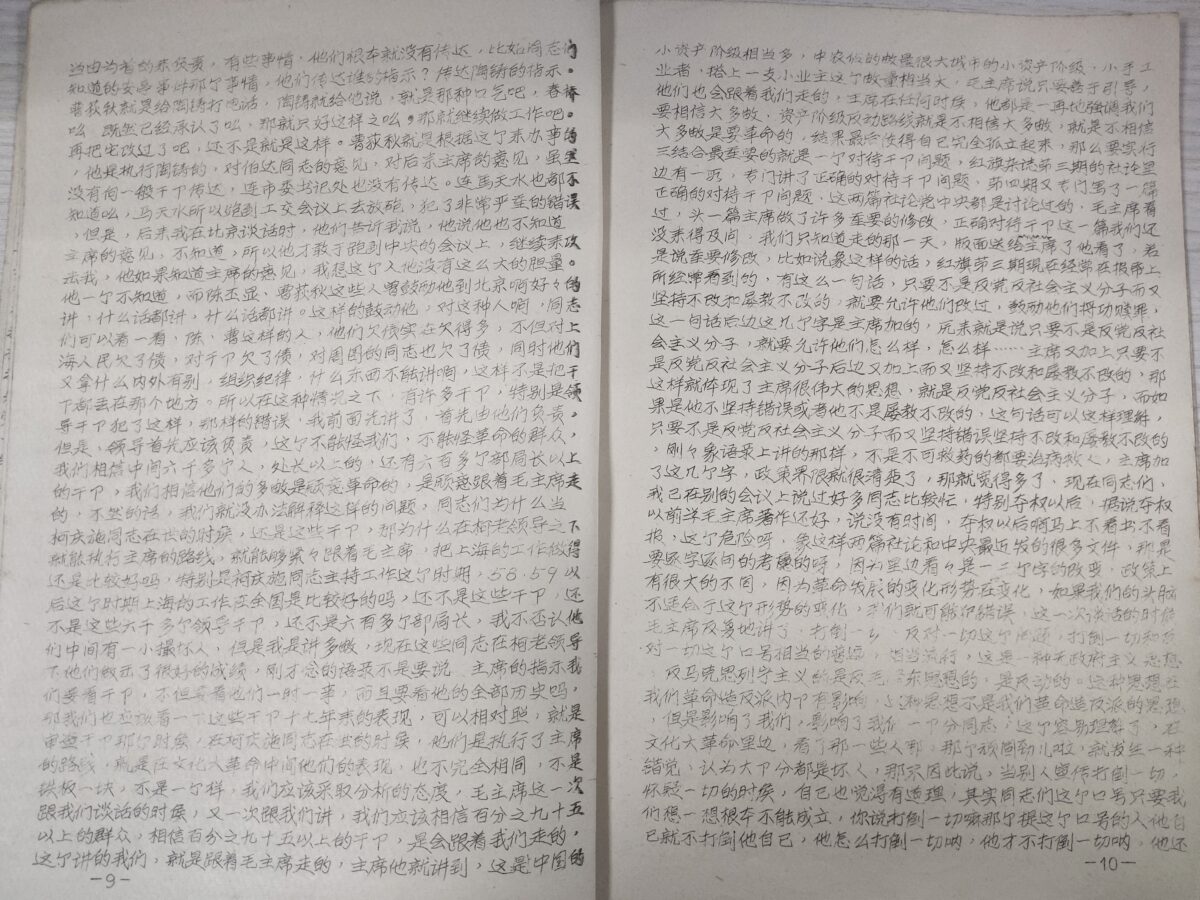 当由为首的来负责，有些事情，他们根本就没有传达，比如同志们
知道的安亭事件那个事情，他们传达谁的指示？传达陶铸的指示。
曹荻秋就是给陶铸打电话，陶铸就给他说，就是那种口气吧，春桥
么，既然已经承认了么，那就只好这样之么。那就继续做工作吧。
再把它改过了吧，还不是就是这样。曹荻秋就是根据这个来办事的
，他是执行陶铸的，对伯达同志的意见，对后来主席的意见，虽
没有向一级干卩传达，连市委书记处也没有传达。连马天水也都不
知道吆，马天水所以跑到工交会议上去放砲，犯了非常严重的错误
，但是，后来我在北京谈话时，他们告诉我说，他说他也不知道
主席的意见，不知道，所以他才敢于跑到中央的会议上，继续来攻
去我，他如果知道主席的意见，我想这个人他没有这么大的胆量。
他一个不知道，而陈丕显、曹荻秋这些人曾鼓动他到北京啊好々的
讲，什么话都讲，什么话都讲。这样的鼓动他，对这种人啊，同志
们可以看一看，陈、曹这样的人，他们欠债实在欠得多，不但对上
海人民欠了债，对干卩欠了债，对周围的同志也欠了债，同时他们
又拿什么内外有别，组织纪律，什么东西不能讲啊，这样不是把干
卩都丢在那个地方。所以在这种情况之下，有许多干卩，特别是领
导干卩犯了这样，那样的错误，我前面先讲了，首先由他们负责，
但是，领导首先应该负责，这个不能怪我们，不能怪革命的群众，
我们相信中间六千多个人，处长以上的，还有六百多个部局长以上
的干卩，我们相信他们的多数是愿意革命的，是愿意跟着毛主席走
的，不然的话，我们就没办法解释这样的问题，同志们为什么当
柯庆施同志在世的时候，还是这些干卩，那为什么在柯老领导之下
就能执行主席的路线，就能够紧々跟着毛主席，把上海的工作做得
还是比较好吗，特别是柯庆施同志主持工作这个时期，58.59以
后这个时期上海的工作在全国是比较好的吗，还不是这些干卩，还
不是这些六千多个领导干卩，还不是六百多个部局长，我不否认他
们中间有一小撮坏人，但是我是讲多数，现在这些同志在柯老领导
下他们做出了很好的成绩，刚才念的语录不是要说，主席的指示我
们要看干卩，不但要看他们一时一事，而且要看他的全部历史吗，
那我们也应该看一下这些干卩十七年来的表现，可以相对照，就是
审查干卩那个时候，在柯庆施同志在世的时候，他们是执行了主席
的路线，就是在文化大革命中间他们的表现，也不完全相同，不是
铁板一块，不是一个样，我们应该采取分析的态度，毛主席这一次
跟我们谈话的时候，又一次跟我们讲，我们应该相信百分之九十五
以上的群众，相信百分之九十五以上的干卩，是会跟着我们走的，
这个讲的我们，就是跟着毛主席走的，主席他就讲到，这是中国的
—9—
小资产阶级相当多，中农他的数量很大城市的小资产阶级，小手工
业者，搭上一支小业主这个数量相当大，毛主席说只要善于引导，
他们也会跟着我们走的，主席在任何时候，他都是一再地强调我们
要相信大多数，资产阶级反动路线就是不相信大多数，就是不相信
大多数是要革命的，结果最后使得自己完全孤立起来，那么要实行
三结合最重要的就是一个对待干卩问题，红旗杂志第三期的社论里
边有一页，专门讲了正确的对待干卩问题，第四期又专门写了一篇
正确的对待干卩问题，这两篇社论党中央都是讨论过的，毛主席看
过，头一篇主席做了许多重要的修改，正确对待干卩这一篇我们还
没来得及问，我们只知道走的那一天，版面送给主席了他看了，若
是说重要修改，比如说象这样的话，红旗第三期现在经常在报帝上
所经常看到的，有这么一句话，只要不是反党反社会主义分子而又
坚持不改和屡教不改的，就要允许他们改过，鼓动他们将功赎罪，
这一句话后边这几个字是主席加的，原来就是说只要不是反党反社
会主义分子，就要允许他们怎么样，怎么样……主席又加上只要不
是反党反社会主义分子后边又加上而又坚持不改和屡教不改的，那
这样就体现了主席很伟大的思想，就是反党反社会主义分子，而如
果是他不坚持错误或者他不是屡教不改的，这句话可以这样理解，
只要不是反党反社会主义分子而又坚持错误坚持不改和屡教不改的
，刚々象语录上讲的那样，不是不可救药的都要治病救人，主席加
了这几个字，政策界限就很清楚了，那就宽得多了，现在同志们，
我已在别的会议上说过好多同志比较忙，特别夺权以后，据说夺权
以前洋毛主席著作还好，说没有时间，夺权以后啊马上不看书不看
报，这个危险呀，象这样两篇社论和中央最近发的很多文件，那是
要逐字逐句的考虑的呀，因为里边看々是一二个字的改变，政策上
有很大的不同，因为革命发展的变化形势在变化，如果我们的头脑
不适合于这个形势的变化，我们就可能犯错误，这一次谈话的时候
毛主席反复地讲了，打倒一切，反对一切这个问题，打倒一切和反
对一切这个口号相当的普遍，相当流行，这是一种无政府主义思想
，反马克思列宁主义的是反毛泽东思想的，是反动的。这种思想在
我们革命造反派内卩有影响，这种思想不是我们革命造反派的思想
，但是影响了我们，影响了我们一卩分同志，这个容易理解了，在
文化大革命里边，看了那一些人那，那个被围勒儿啦，就发生一种
错觉，认为大卩分都是坏人，那末因此说，当别人宣传打倒一切，
怀疑一切的时候，自己也觉得有道理，其实同志们这个口号只要我
们想一想根本不能成立，你说打倒一切嘛那个提这个口号的人他自
己就不打倒他自己，他怎么打倒一切呐，他才不打倒一切呐，他还
—10—